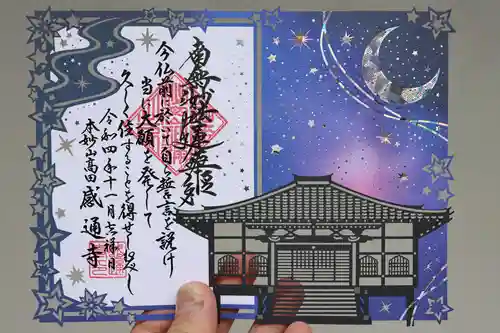 南無妙法蓮華経
今仏前に於いて自ら誓言を説け
当に大願を発して
久しく住することを得せしめん
令和四年十一月吉祥日
本妙山高田 感通寺